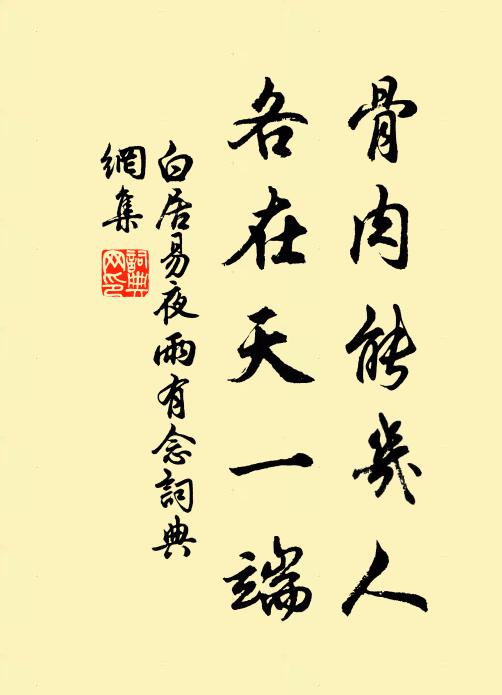 骨肉能幾人
各在天一端
白居易夜雨有念詞典
網集
詞典网印